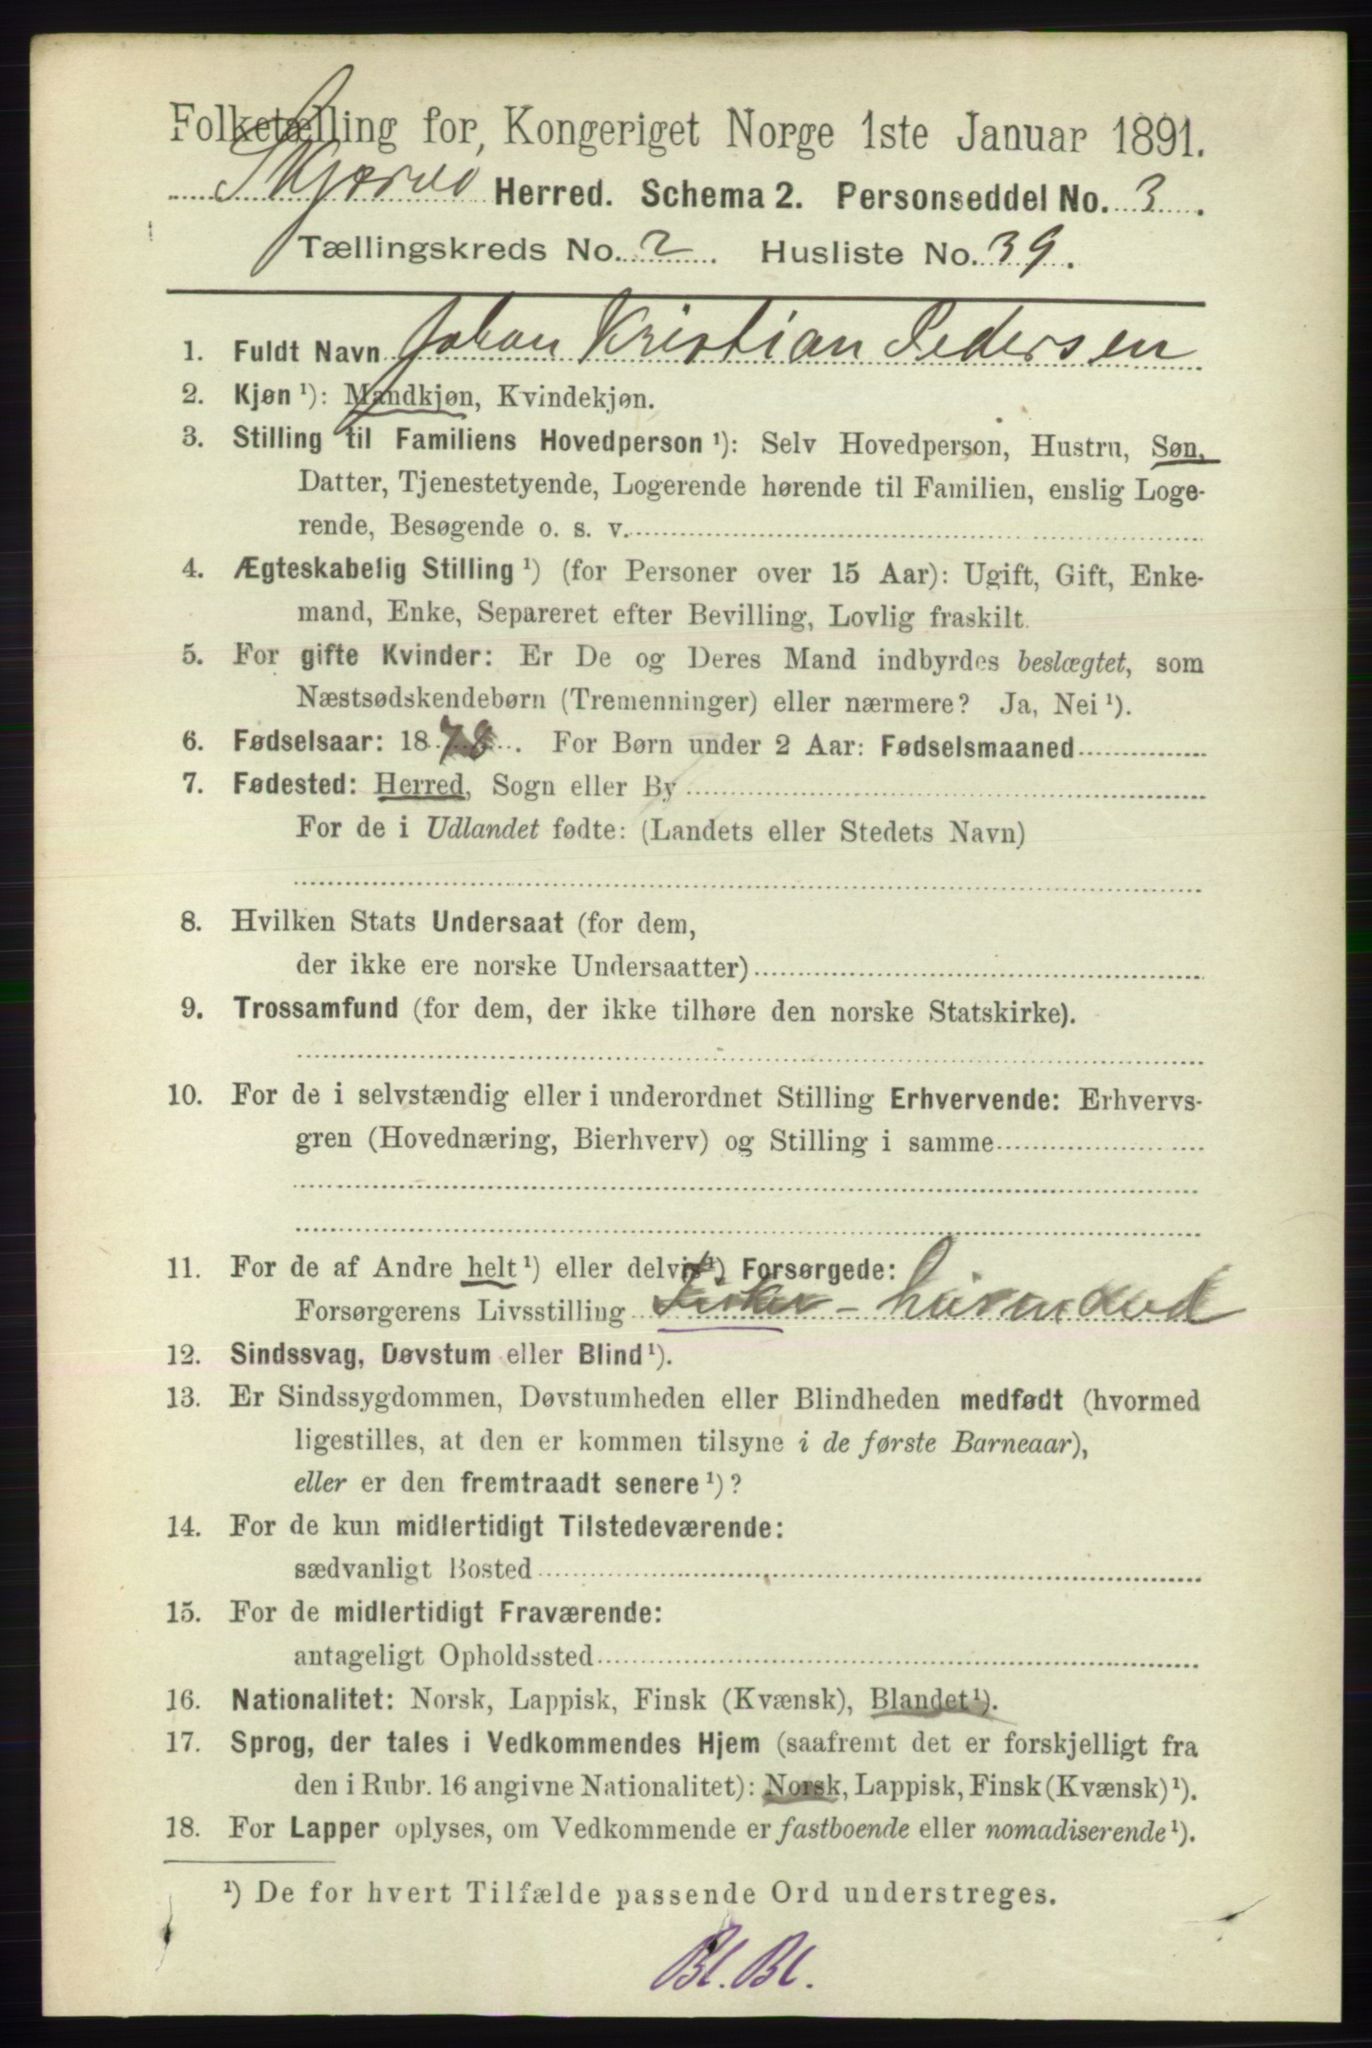 Folketælling for Kongeriget Norge 1ste Januar 1891.
Skjervø Herred. Schema 2. Personseddel No. 3.
Tællingskreds No. 2. Husliste No. 39.
1. Fuldt Navn Johan Kristian Pedersen
2. Kjøn ¹): Mandkjøn, Kvindekjøn.
3. Stilling til Familiens Hovedperson ¹): Selv Hovedperson, Hustru, Søn,
Datter, Tjenestetyende, Logerende hørende til Familien, enslig Loge-
rende, Besøgende o. s. v.
4. Ægteskabelig Stilling ¹) (for Personer over 15 Aar): Ugift, Gift, Enke-
mand, Enke, Separeret efter Bevilling, Lovlig fraskilt.
5. For gifte Kvinder: Er De og Deres Mand indbyrdes beslægtet, som
Næstsødskendebørn (Tremenninger) eller nærmere? Ja, Nei ¹).
6. Fødselsaar: 1878. For Børn under 2 Aar: Fødselsmaaned
7. Fødested: Herred, Sogn eller By
For de i Udlandet fødte: (Landets eller Stedets Navn)
8. Hvilken Stats Undersaat (for dem,
der ikke ere norske Undersaatter)
9. Trossamfund (for dem, der ikke tilhøre den norske Statskirke).
10. For de i selvstændig eller i underordnet Stilling Erhvervende: Erhvervs-
gren (Hovednæring, Bierhverv) og Stilling i samme
11. For de af Andre helt ¹) eller delvis ¹) Forsørgede:
Forsørgerens Livsstilling Fisker -
12. Sindssvag, Døvstum eller Blind ¹).
13. Er Sindssygdommen, Døvstumheden eller Blindheden medfødt (hvormed
ligestilles, at den er kommen tilsyne i de første Barneaar),
eller er den fremtraadt senere ¹)?
14. For de kun midlertidigt Tilstedeværende:
sædvanligt Bosted
15. For de midlertidigt Fraværende:
antageligt Opholdssted
16. Nationalitet: Norsk, Lappisk, Finsk (Kvænsk), Blandet ¹).
17. Sprog, der tales i Vedkommendes Hjem (saafremt det er forskjelligt fra
den i Rubr. 16 angivne Nationalitet): Norsk, Lappisk, Finsk (Kvænsk) ¹).
18. For Lapper oplyses, om Vedkommende er fastboende eller nomadiserende ¹).
¹) De for hvert Tilfælde passende Ord understreges.
Bl. Bl.